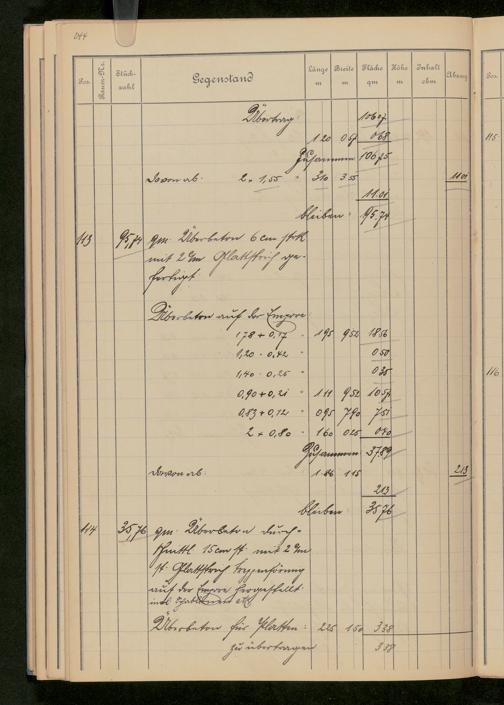 044
Pos. Raum-Nr. Stückzahl Gegenstand Länge m Breite m Fläche qm Höhe m Inhalt cbm Abzug Pos.
Übertrag: 106 07
1 20 0 57 0 68
Zusammen 106 75
davon ab: 2 × 1,55 " 3 10 3 55 11 01
11 01
bleiben: 95 74
115
113 95,74 qm Überbeton 6 cm stk
mit 2 cm Glattstrich ge-
fertigt
Überbeton auf der Empore
1,78 + 0,17 " 1 95 9 52 18 56
1,20 · 0,42 " 0 50
116
1,40 · 0,25 " 0 35
0,90 + 0,21 " 1 11 9 52 10 57
0,83 + 0,12 " 0 95 7 90 7 51
2 × 0,80 " 1 60 0 25 0 40
Zusammen 37 89
davon ab: 1 86 1 15 2 13
2 13
bleiben: 35 76
114 35,76 qm Überbeton durch-
schnittl 15 cm st. mit 2 cm
st. Glattstrich
auf der Empore hergestellt
Überbeton für Platten: 2 25 1 50 3 38
zu übertragen 3 38